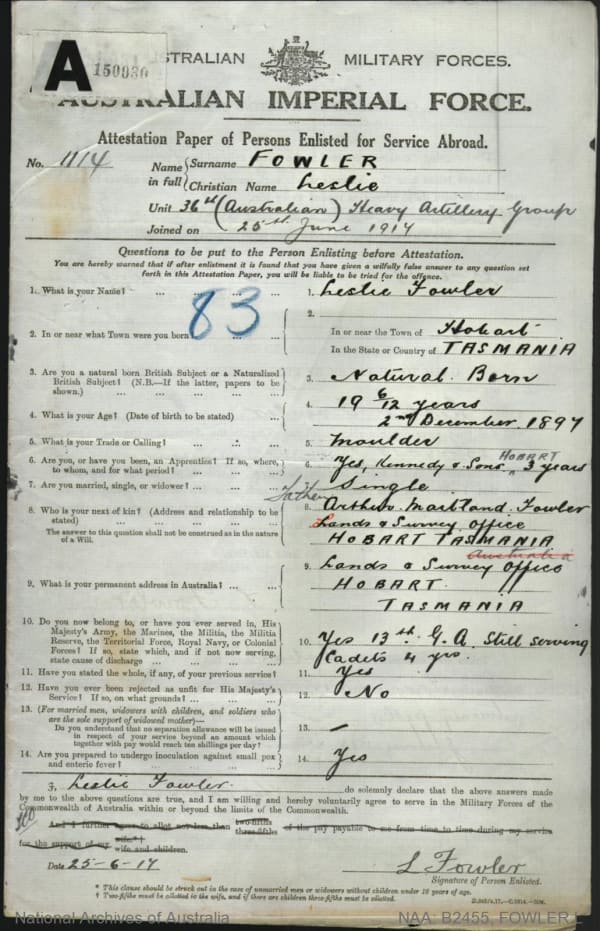 A 150930
AUSTRALIAN MILITARY FORCES.
AUSTRALIAN IMPERIAL FORCE.
Attestation Paper of Persons Enlisted for Service Abroad.
No. 1114
Name in full { Surname FOWLER
Christian Name Leslie
Unit 36th (Australian) Heavy Artillery Group
Joined on 25th June 1917
Questions to be put to the Person Enlisting before Attestation.
You are hereby warned that if after enlistment it is found that you have given a wilfully false answer to any question set
forth in this Attestation Paper, you will be liable to be tried for the offence.
1. What is your Name? ... ... ... ... 1. Leslie Fowler
83
2. In or near what Town were you born? 2. In or near the Town of Hobart
In the State or Country of TASMANIA
3. Are you a natural born British Subject or a Naturalized
British Subject? (N.B.—If the latter, papers to be
shown.) ... ... ... ... 3. Natural Born
4. What is your Age? (Date of birth to be stated) ... 4. 19 6/12 years
2nd December 1897
5. What is your Trade or Calling? ... ... ... 5. Moulder
6. Are you, or have you been, an Apprentice? If so, where,
to whom, and for what period? ... ... 6. Yes, Kennedy & Sons HOBART 3 years
7. Are you married, single, or widower? ... ... 7. Single
Father
8. Who is your next of kin? (Address and relationship to be
stated) ... ... ... ... 8. Arthur Maitland Fowler
The answer to this question shall not be construed as in the nature
of a Will.
Lands & Survey Office
HOBART TASMANIA
Australia
9. What is your permanent address in Australia? ... 9. Lands & Survey Office
HOBART.
TASMANIA
10. Do you now belong to, or have you ever served in, His
Majesty's Army, the Marines, the Militia, the Militia
Reserve, the Territorial Force, Royal Navy, or Colonial
Forces? If so, state which, and if not now serving,
state cause of discharge ... ... ... 10. Yes 13th G. A. Still serving
Cadets 4 yrs.
11. Have you stated the whole, if any, of your previous service? 11. Yes
12. Have you ever been rejected as unfit for His Majesty's
Service? If so, on what grounds? ... ... 12. No
13. (For married men, widowers with children, and soldiers who
are the sole support of widowed mother)—
Do you understand that no separation allowance will be issued
in respect of your service beyond an amount which
together with pay would reach ten shillings per day? 13. —
14. Are you prepared to undergo inoculation against small pox
and enteric fever? ... ... ... 14. Yes
I, Leslie Fowler. do solemnly declare that the above answers made
by me to the above questions are true, and I am willing and hereby voluntarily agree to serve in the Military Forces of the
Commonwealth of Australia within or beyond the limits of the Commonwealth.
And I further agree to allot not less than two-fifths three-fifths of the pay payable to me from time to time during my service
for the support of my wife*† wife and children.
Date 25-6-17
L Fowler
Signature of Person Enlisted.
* This clause should be struck out in the case of unmarried men or widowers without children under 18 years of age.
† Two-fifths must be allotted to the wife, and if there are children three-fifths must be allotted.
National Archives of Australia
NAA: B2455, FOWLER L